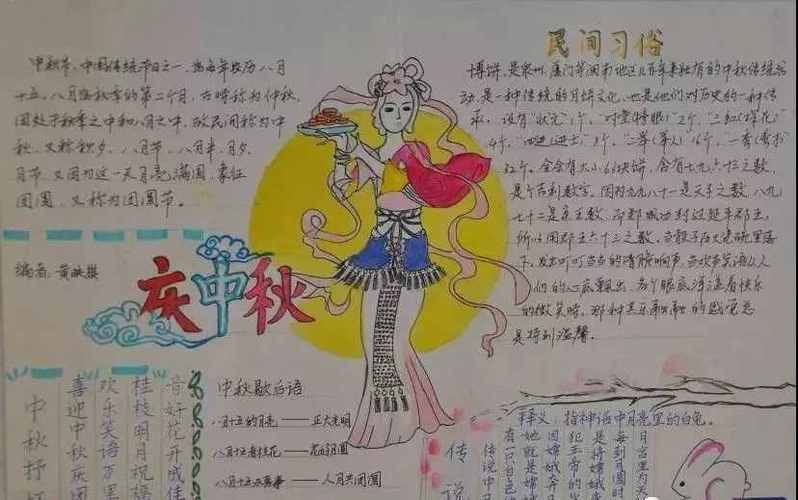 中秋节,中国传统节日之一,为每年农历八月
十五。八月为秋季的第二个月,古时称为仲秋,
因处于秋季之中和八月之中,故民间称为中
秋,又称秋夕、八月节、八月半、月夕、
月节,又因为这一天月亮满圆,象征
团圆,又称为团圆节。
编者:黄
庆中秋
民间习俗
博饼,是泉州、厦门等闽南地区几百年来独有的中秋传统活
动,是一种传统的月饼文化,也是他们对历史的一种传
承。设有"状元"1个,"对堂榜眼"2个,"三红(探花)"
4个,"四进(进士)"8个,"二举(举人)"16个,一秀(秀才)
32个。全会有大小63块饼,含有七九六十三之数,
是个吉利数字。因为九九八十一是天子之数,八九
七十二是亲王数,而郑成功封过延平郡王,
所以用郡王六十三之数。当骰子
下,发出叮叮当当的清脆响声,当欢声笑语从人
们的心底飘出,当个个眼底洋溢着快乐
的微笑时,那种其乐融融的感觉总
是特别温馨。
中秋抒
喜迎中秋庆团
欢乐笑语万里
桂枝明月祝福
音好花开成佳
中秋歇后语
八月十五的月亮——正大光明
八月十五看桂花——花好月圆
八月十五——人月共团圆
传说
释义:指神话中月亮里的白兔。
月宫里
每到月圆时
是将嫦娥
犯玉帝的
因嫦娥奔月
她就是嫦
有一只白色
传说中